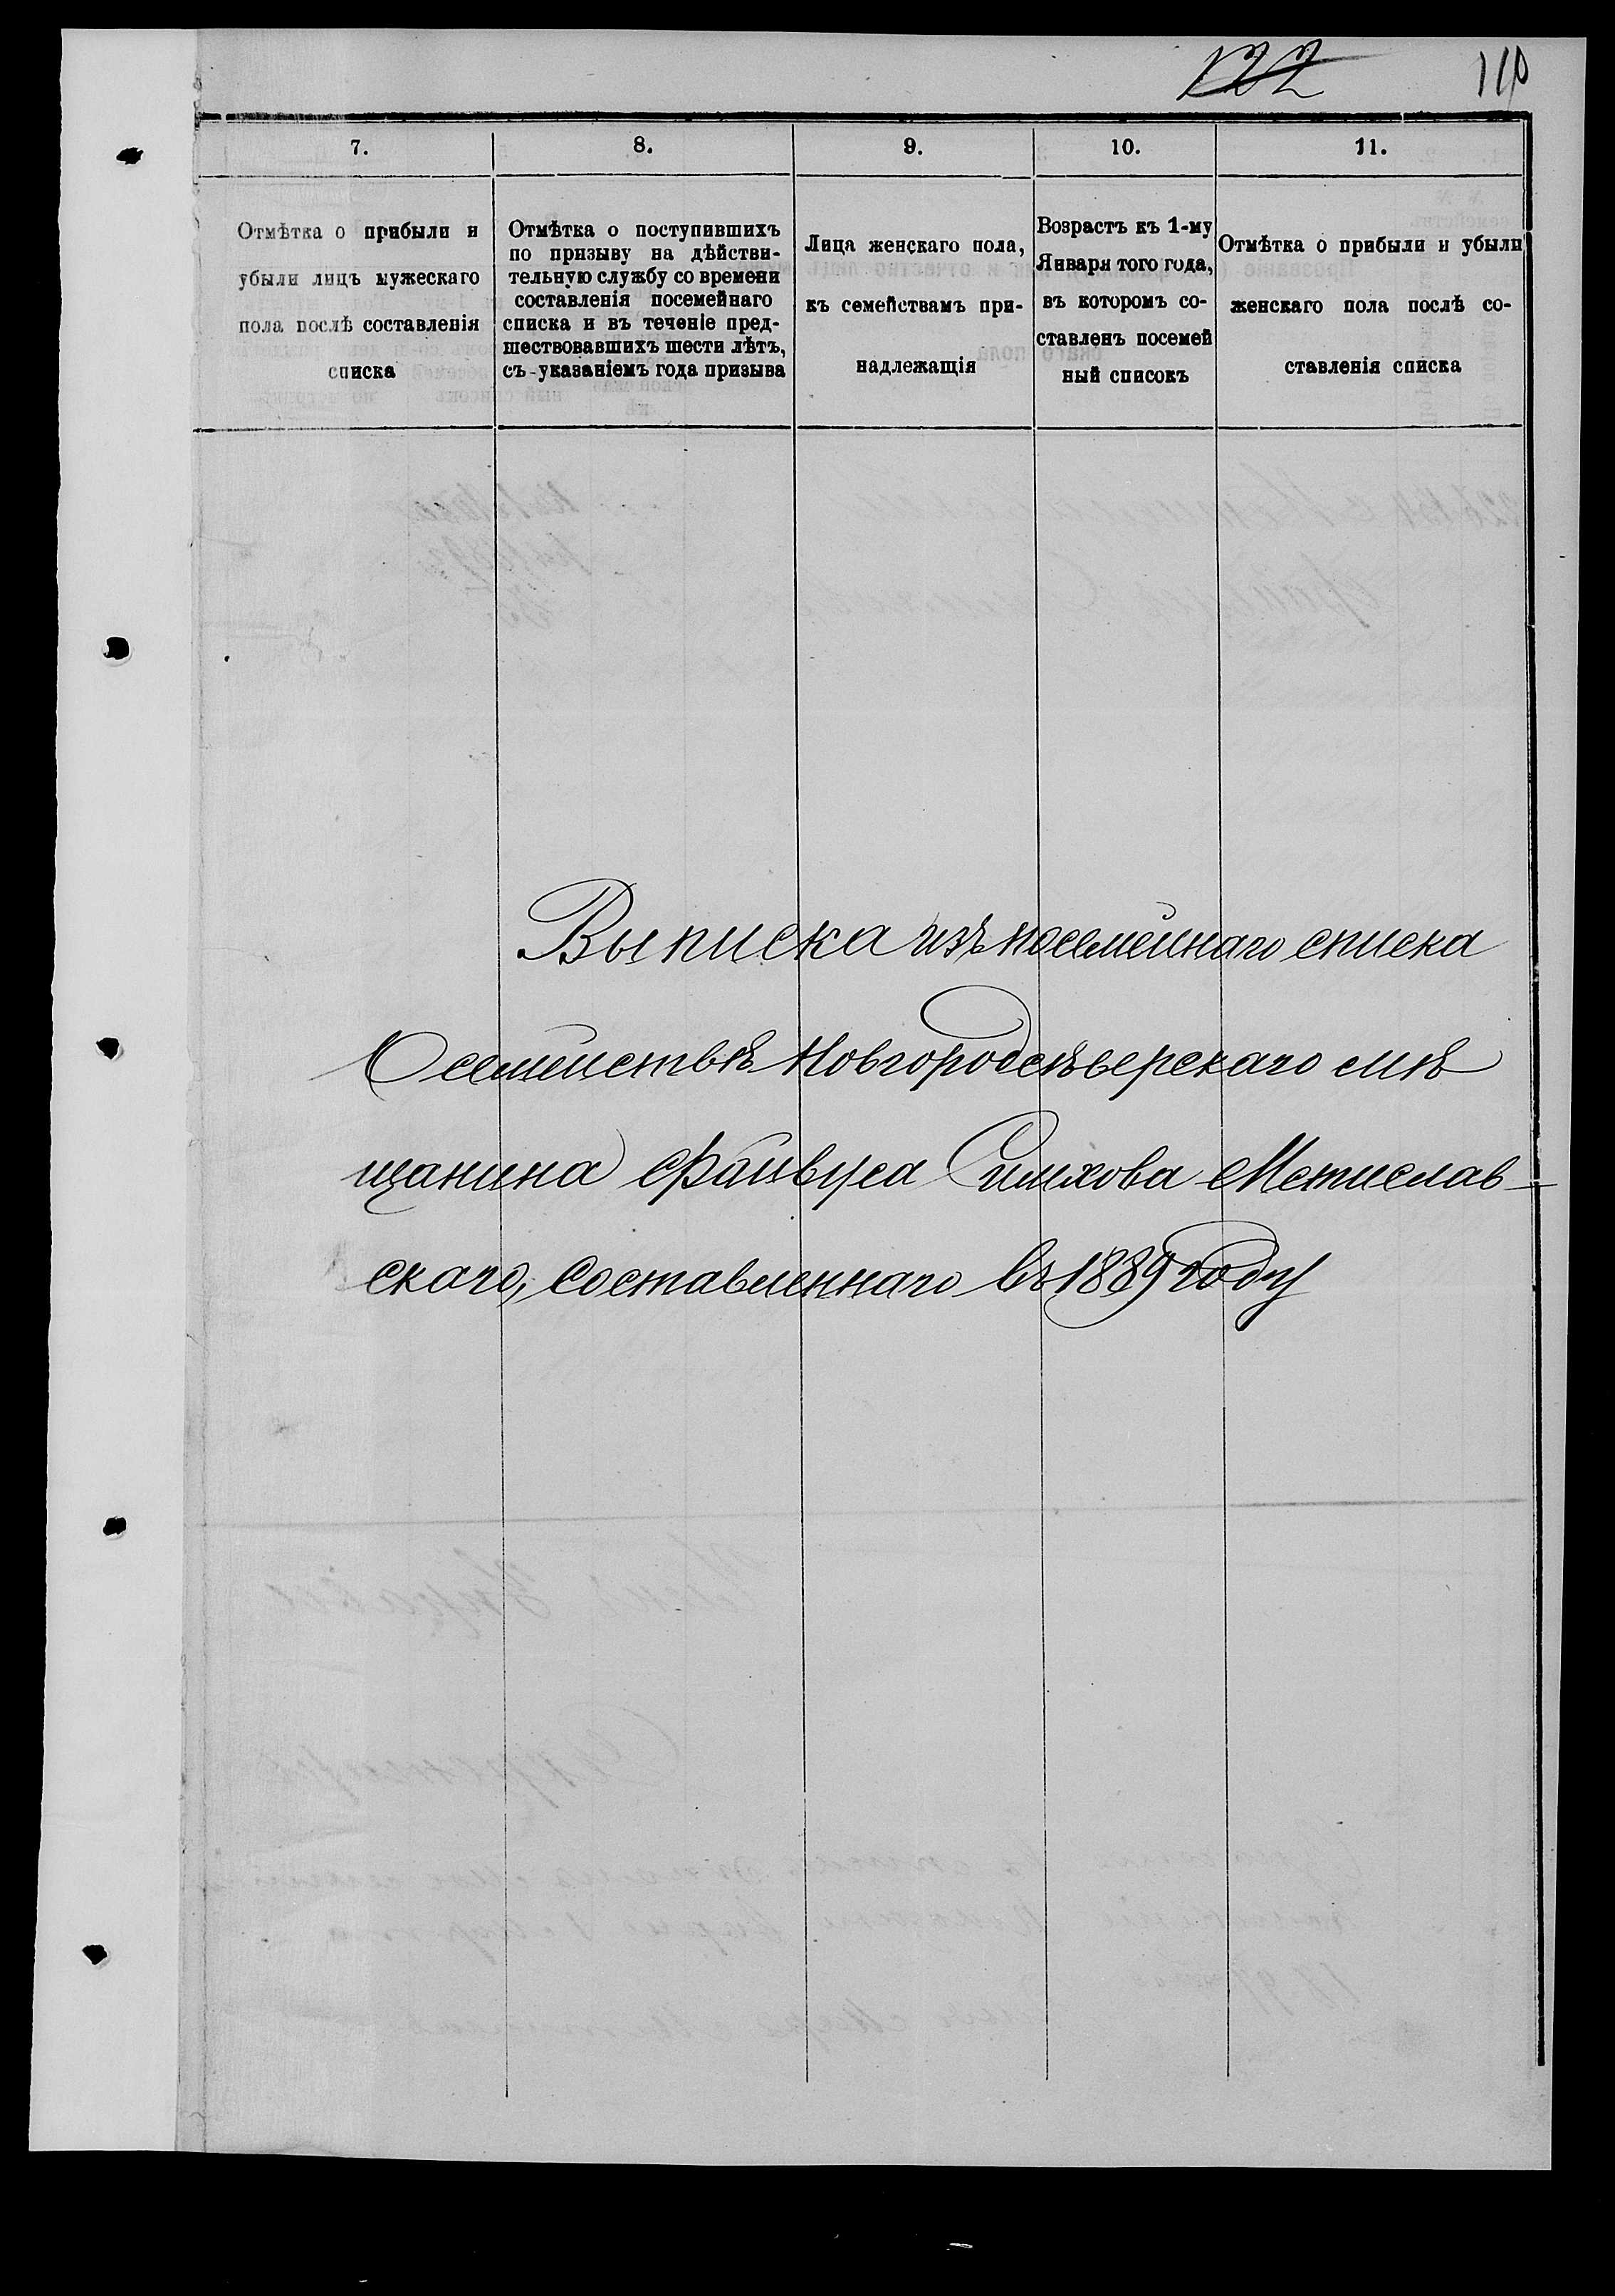 122 110
7. 8. 9. 10. 11.
Отмѣтка о прибыли и
убыли лицъ мужескаго
пола послѣ составленія
списка
Отмѣтка о поступившихъ
по призыву на дѣйстви-
тельную службу со времени
составленія посемейнаго
списка и въ теченіе пред-
шествовавшихъ шести лѣтъ,
съ-указаніемъ года призыва
Лица женскаго пола,
къ семействамъ при-
надлежащія
Возрастъ къ 1-му
Января того года,
въ которомъ со-
ставленъ посемей
ный списокъ
Отмѣтка о прибыли и убыли
женскаго пола послѣ со-
ставленія списка
Выписка изъ посемейнаго списка
О семействѣ Новгородсѣверскаго мѣ
щанина Файвуса Симхова Мстислав-
скаго, составленнаго въ 1889 году